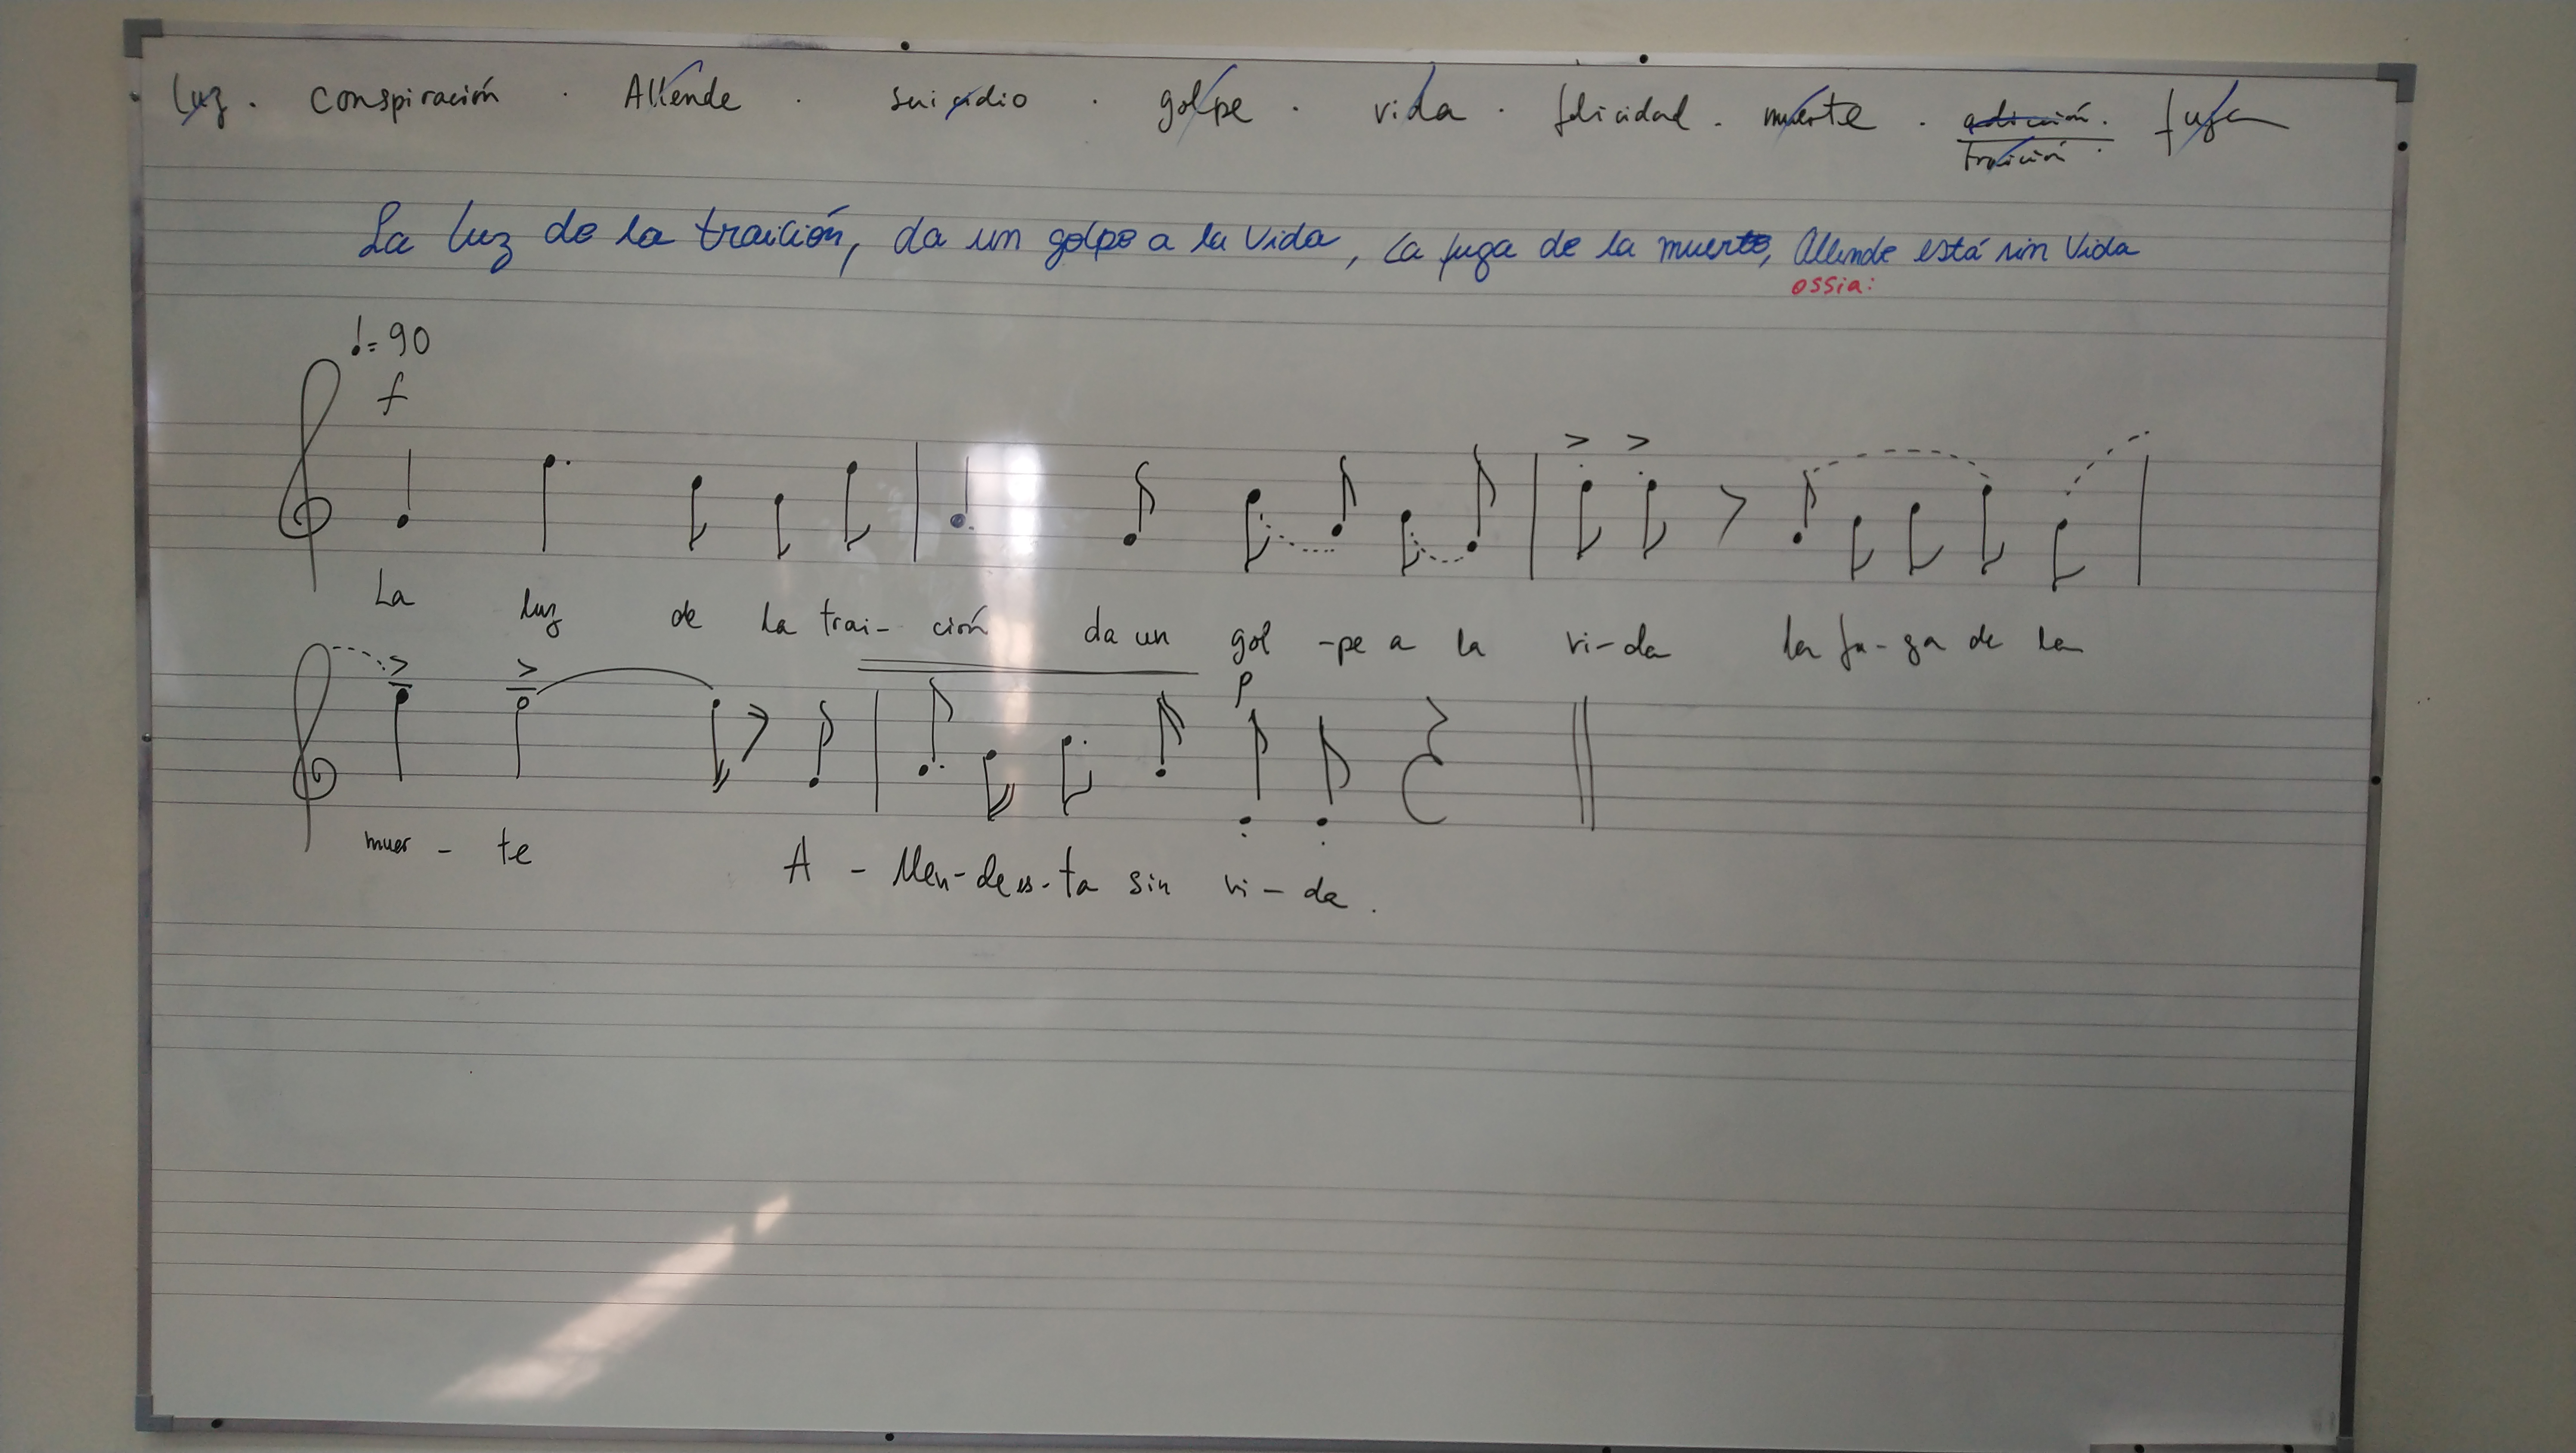 luz . conspiración . Allende . suicidio . golpe . vida . felicidad . muerte . adicción . fuga
traición .
La luz de la traición, da un golpe a la Vida, La fuga de la muerte, Allende está sin Vida
ossia:
♩= 90
f
La luz de la trai- ción da un gol -pe a la vi-da la fu-ga de la
p
muer - te A - llen-de es-ta sin vi - da .